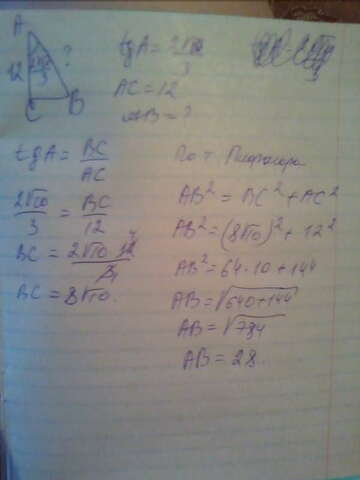 A
12
?
2√10
3
C
B
tgA = 2√10
3
AC = 12
AB = ?
tgA = BC
AC
2√10 = BC
3 12
BC = 2√10 · 12 4
3
BC = 8√10.
По т Пифагора
AB² = BC² + AC²
AB² = (8√10)² + 12²
AB² = 64 · 10 + 144
AB = √640+144
AB = √784
AB = 28.